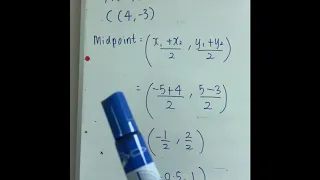 C (4,-3)
Midpoint = (x₁ + x₂ / 2 , y₁ + y₂ / 2)
= (-5+4 / 2 , 5-3 / 2)
(-1/2 , 2/2)
0.5, 1)